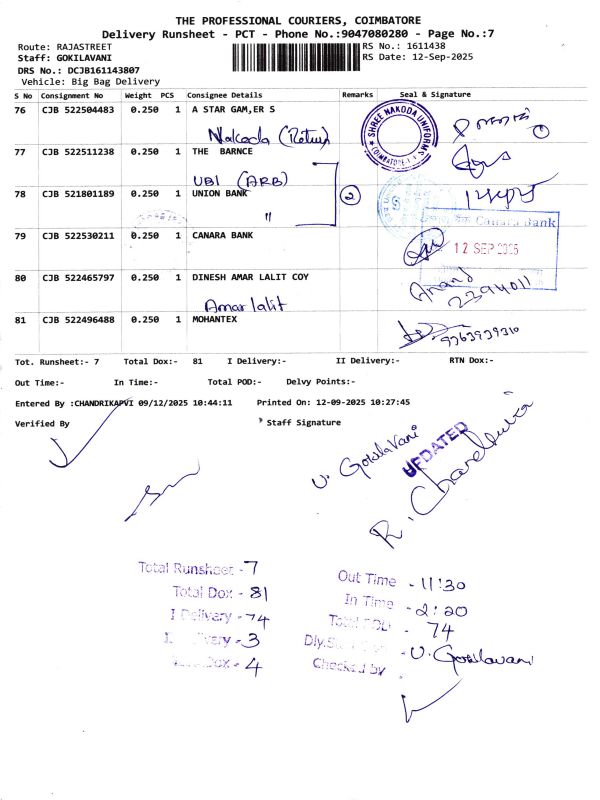 THE PROFESSIONAL COURIERS, COIMBATORE
Delivery Runsheet - PCT - Phone No.:9047080280 - Page No.:7
Route: RAJASTREET
Staff: GOKILAVANI
DRS No.: DCJB161143807
Vehicle: Big Bag Delivery
RS No.: 1611438
RS Date: 12-Sep-2025
S No Consignment No Weight PCS Consignee Details Remarks Seal & Signature
76 CJB 522504483 0.250 1 A STAR GAM,ER S
Nakoda (Return)
SHREE NAKODA UNIFORMS
COIMBATORE-1
77 CJB 522511238 0.250 1 THE BARNCE
UBI (ARB)
78 CJB 521801189 0.250 1 UNION BANK
" 2
79 CJB 522530211 0.250 1 CANARA BANK
Canara Bank
12 SEP 2025
80 CJB 522465797 0.250 1 DINESH AMAR LALIT COY
Amar lalit
Anand
2394011
81 CJB 522496488 0.250 1 MOHANTEX
9363939310
Tot. Runsheet:- 7 Total Dox:- 81 I Delivery:- II Delivery:- RTN Dox:-
Out Time:- In Time:- Total POD:- Delvy Points:-
Entered By :CHANDRIKAPVI 09/12/2025 10:44:11 Printed On: 12-09-2025 10:27:45
Verified By Staff Signature
U. GokilaVani
UPDATED
R. Chandrika
Total Runsheet - 7
Total Dox - 81
I Delivery - 74
- 3
Dox - 4
Out Time - 11:30
In Time - 2:20
Total POD - 74
- U. Gokilavani
Checked by